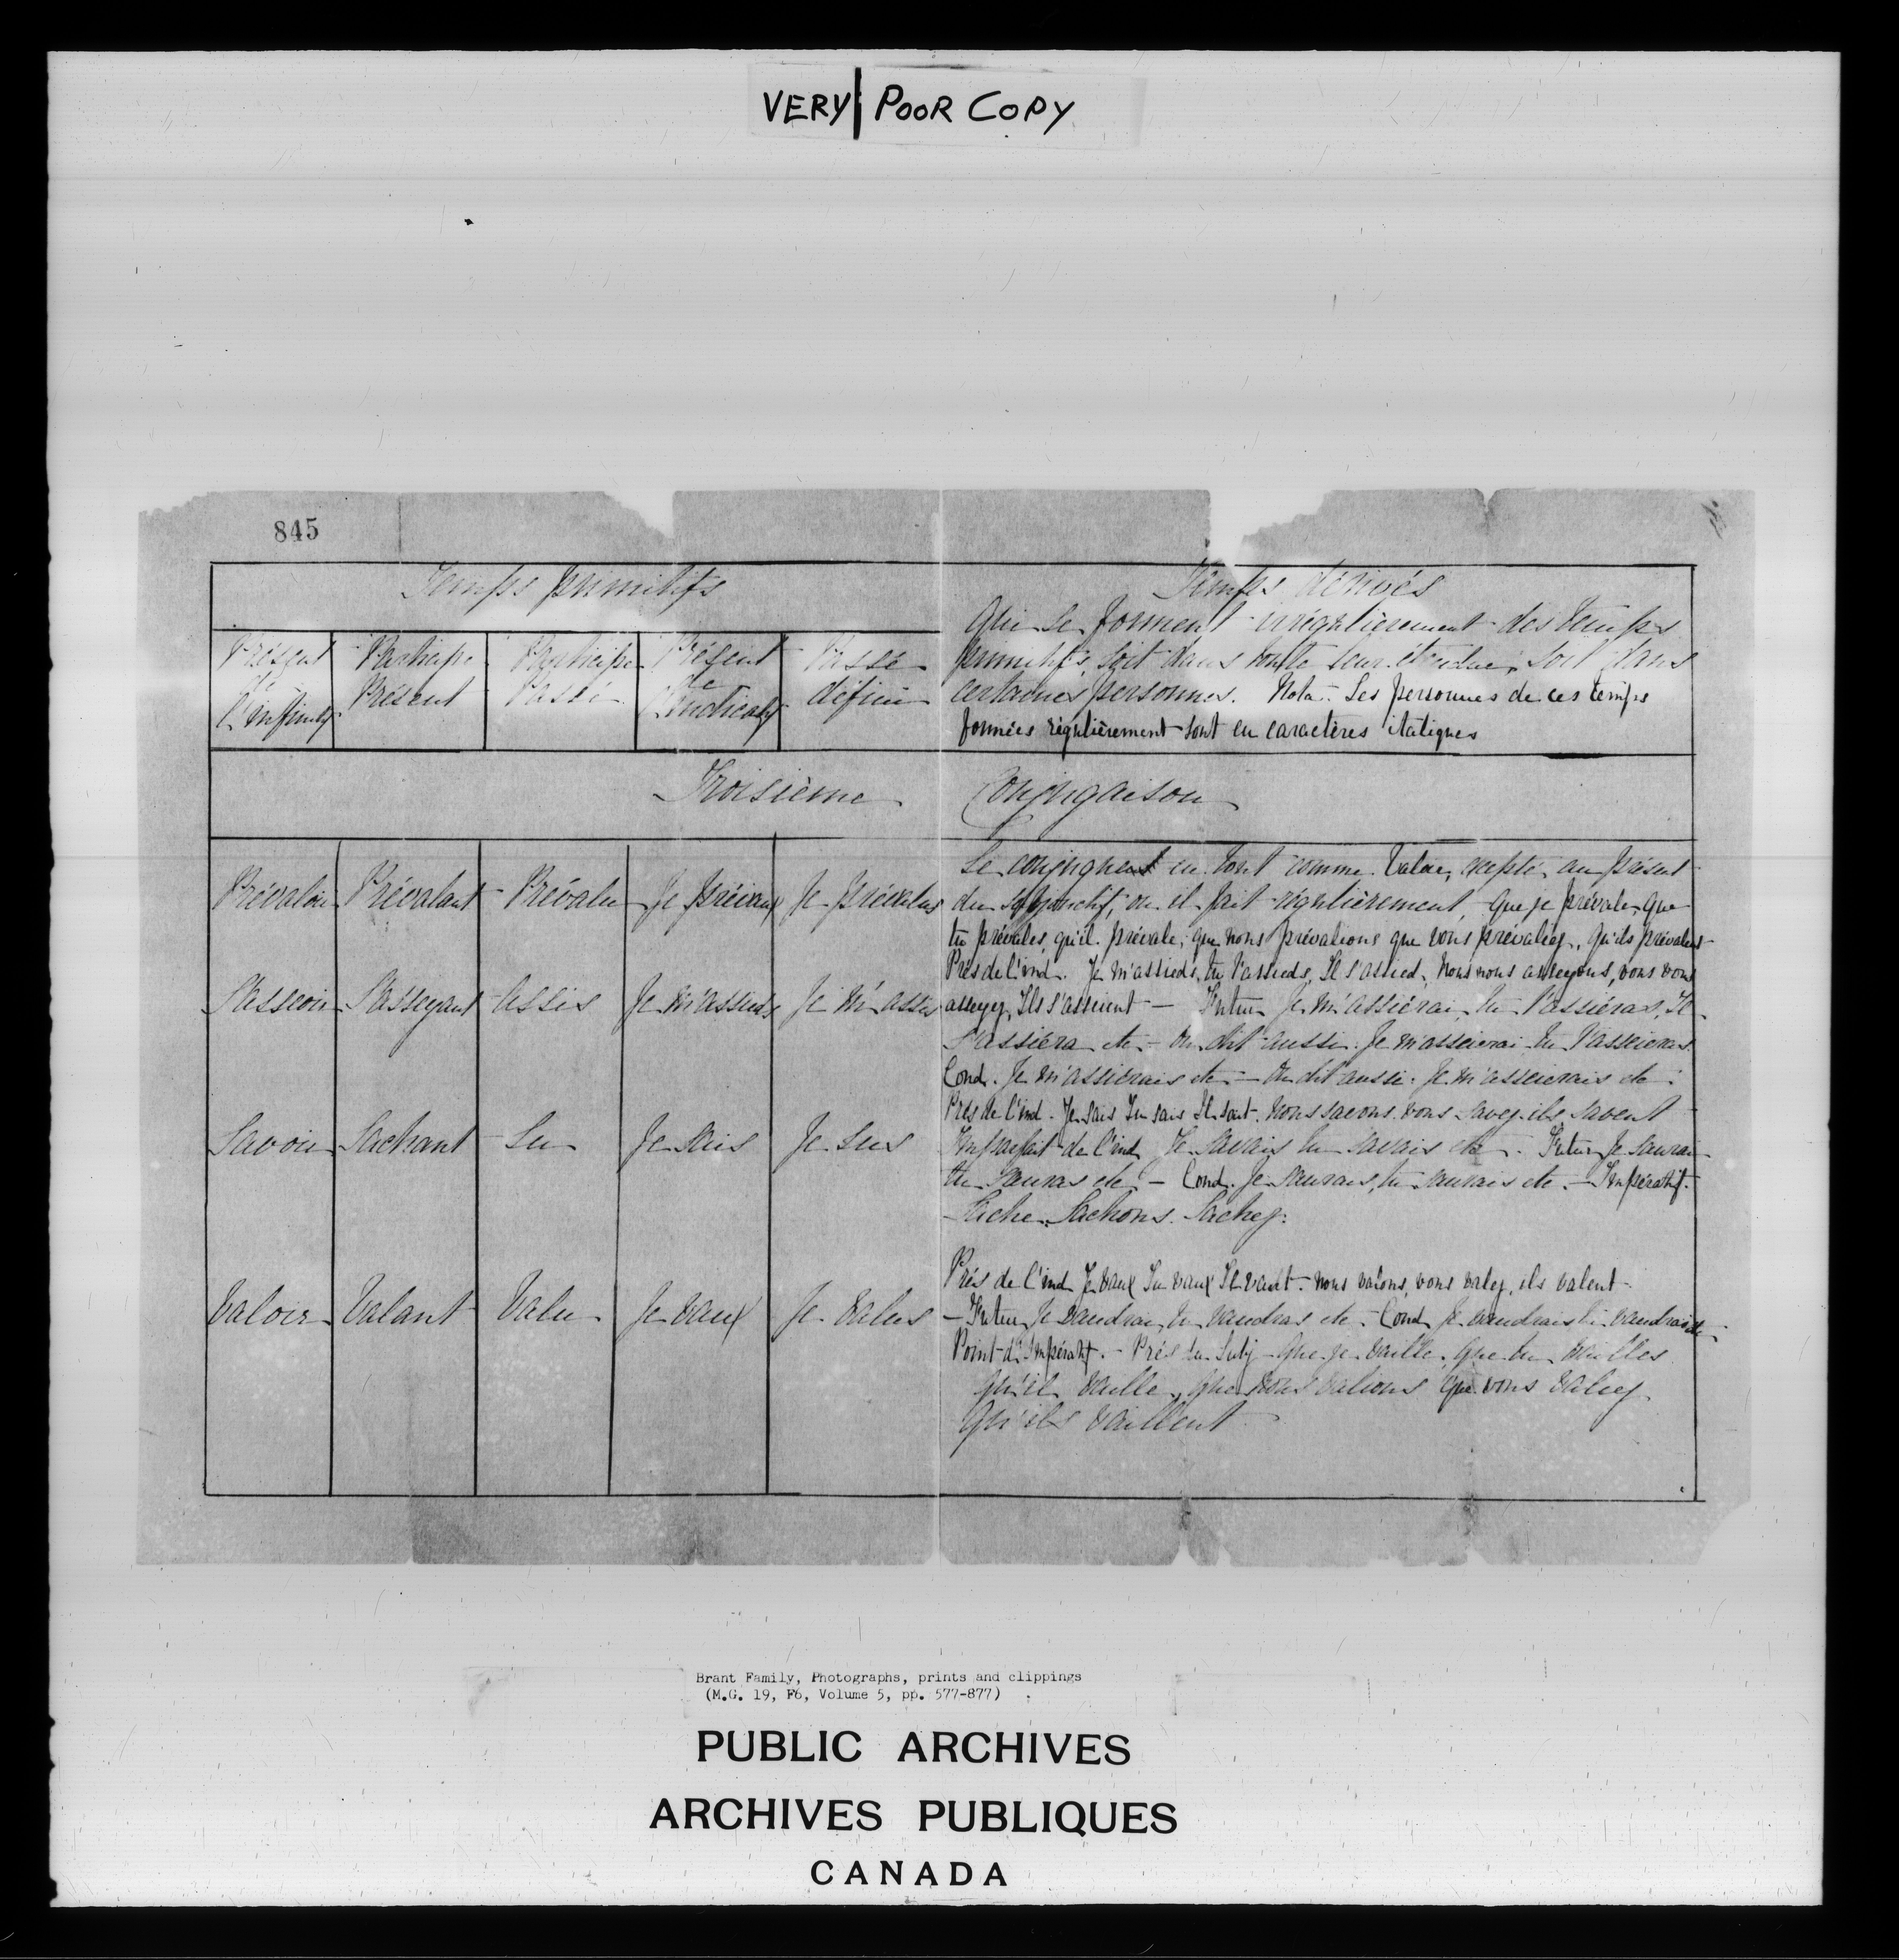 VERY POOR COPY
845
Temps primitifs
Temps dérivés
Qui se forment irrégulièrement des temps
primitifs, soit dans toute leur étendue, soit dans
certaines personnes. Nota. Les personnes de ces temps
formées régulièrement sont en caractères italiques
Présent de l'infinitif
Participe Présent
Participe Passé
Présent de l'Indicatif
Passé défini
Troisième Conjugaison
Prévaloir Prévalant Prévalu Je prévaux Je prévalus
Se conjuguent en tout comme Valoir, excepté au présent
du subjonctif, ou il fait régulièrement, que je prévale, que
tu prévales, qu'il prévale, que nous prévalions que vous prévaliez, qu'ils prévalent
S'asseoir S'asseyant Assis Je m'assieds Je m'assis
Prés de l'ind. Je m'assieds, tu t'assieds, Il s'assied, nous nous asseyons, vous vous
asseyez, Ils s'asseient — Futur Je m'assiérai, tu t'assiéras, Il
s'assiéra etc – On dit aussi. Je m'asseierai tu t'asseieras
Cond. Je m'assiérais etc – On dit aussi. Je m'asseierais etc.
Savoir Sachant Su Je sais Je sus
Prés de l'ind. Je sais Tu sais Il sait. Nous savons. vous savez. ils savent
Imparfait de l'ind Je savais tu savais etc. Futur Je saurai
tu sauras etc – Cond. Je saurais, tu saurais etc. – Impératif.
Sache. Sachons. Sachez.
Valoir Valant Valu Je vaux Je valus
Prés de l'ind Je vaux Tu vaux Il vaut. nous valons, vous valez, ils valent.
– Futur Je vaudrai, tu vaudras etc. Cond Je vaudrais tu vaudrais etc.
Point d'Impératif. – Prés du Subj – Que je vaille, que tu vailles
qu'il vaille, que nous valions que vous valiez
qu'ils vaillent
Brant Family, Photographs, prints and clippings
(M.G. 19, F6, Volume 5, pp. 577-877)
PUBLIC ARCHIVES
ARCHIVES PUBLIQUES
CANADA